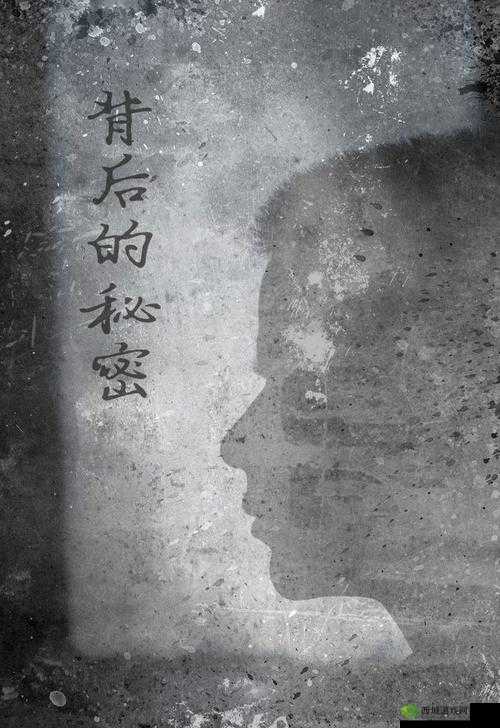 背后的秘密
西城游戏网